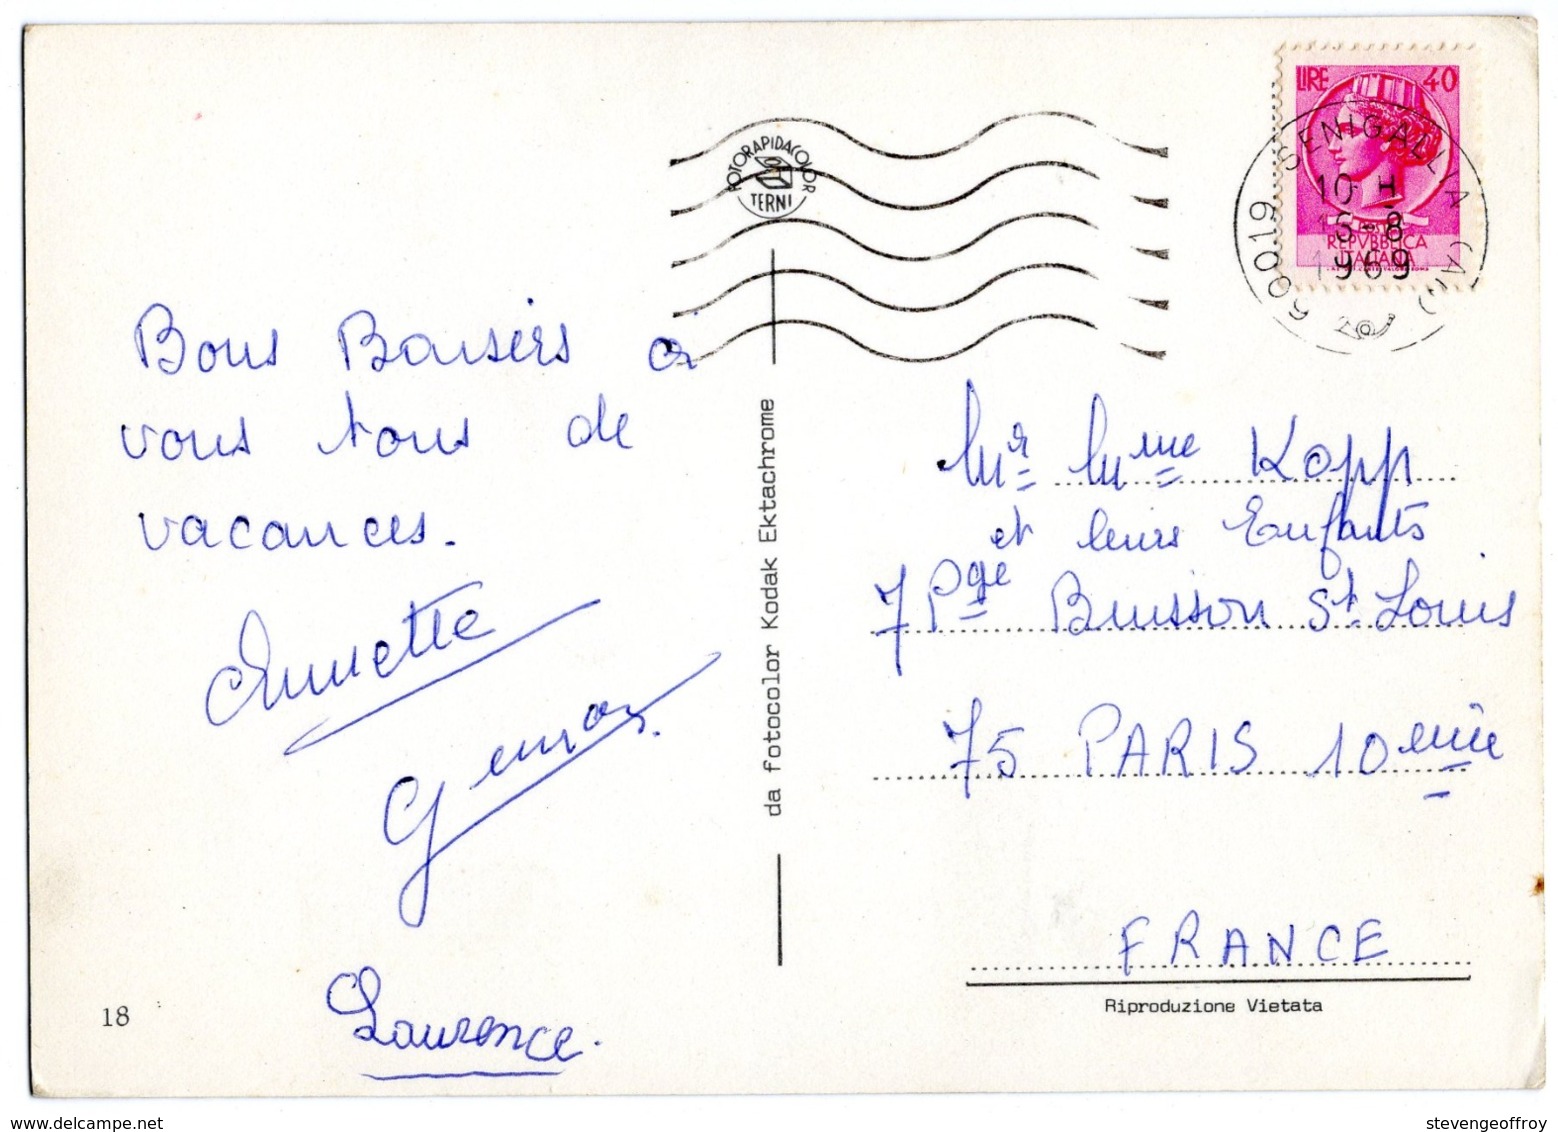 FOTORAPIDACOLOR
TERNI
LIRE 40
60019 SENIGALLIA (AN)
10-H
15-8
1969
POSTE
REPVBBLICA
ITALIANA
Bons Baisers à
vous tous de
vacances.
Annette
Laurence.
18
da fotocolor Kodak Ektachrome
Mr Mme Kopp
et leurs Enfants
7 Pge Buisson St. Louis
75 PARIS 10ème
FRANCE
Riproduzione Vietata
www.delcampe.net
stevengeoffroy